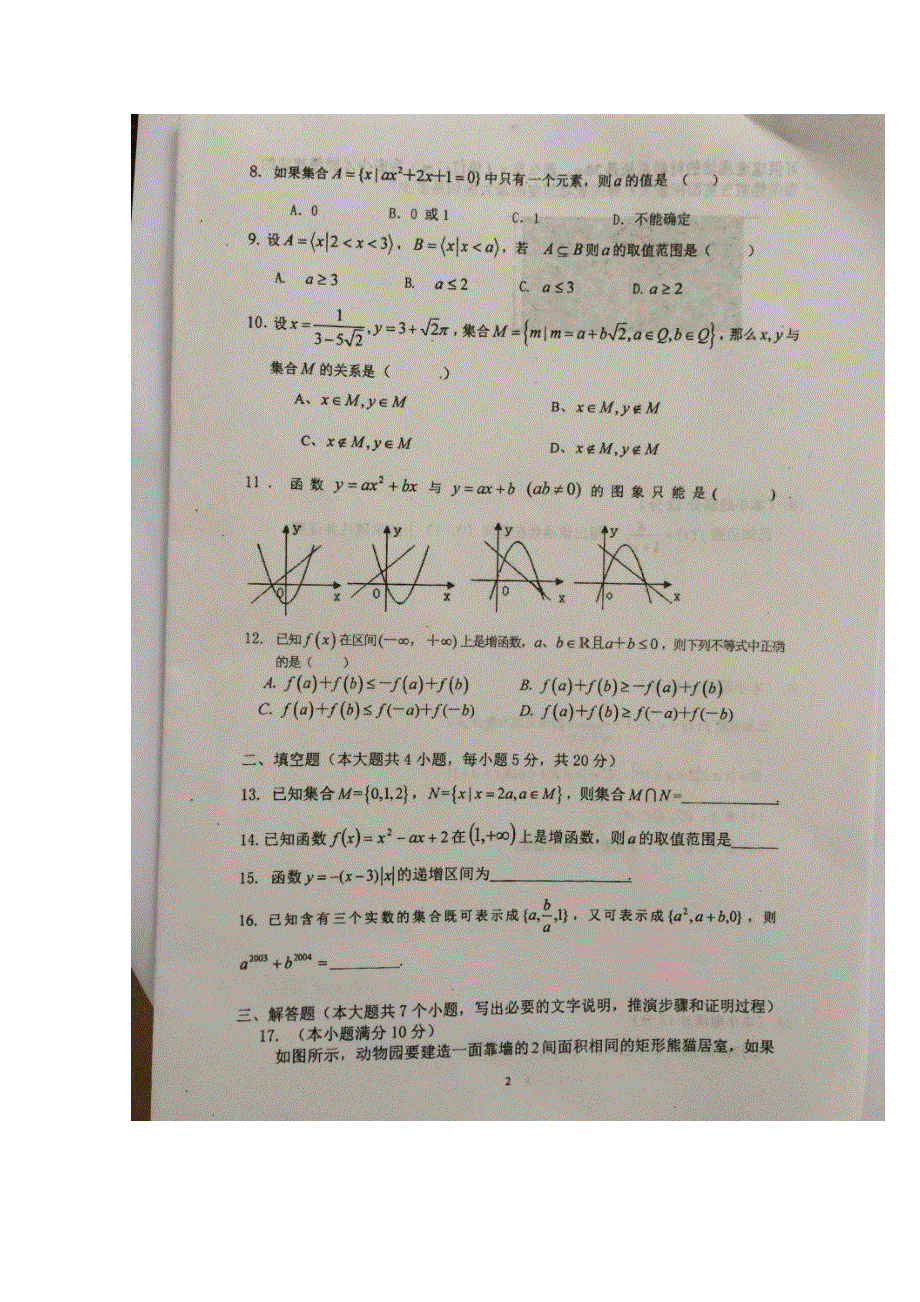 8. 如果集合 A={x | ax²+2x+1=0} 中只有一个元素，则 a 的值是 （ ）
A. 0 B. 0 或 1 C. 1 D. 不能确定
9. 设 A=⟨x|2<x<3⟩，B=⟨x|x<a⟩，若 A⊆B则 a 的取值范围是（ ）
A. a≥3 B. a≤2 C. a≤3 D. a≥2
10. 设 x=1/(3-5√2), y=3+√2π，集合 M={m | m=a+b√2, a∈Q, b∈Q}，那么 x,y 与
集合 M 的关系是（ ）
A、x∈M, y∈M B、x∈M, y∉M
C、x∉M, y∈M D、x∉M, y∉M
11. 函数 y=ax²+bx 与 y=ax+b (ab≠0) 的图象只能是( )
y y y y
O x O x O x o x
12. 已知 f(x) 在区间(−∞, +∞)上是增函数, a、b∈R且a+b≤0，则下列不等式中正确
的是（ ）
A. f(a)+f(b)≤−f(a)+f(b) B. f(a)+f(b)≥−f(a)+f(b)
C. f(a)+f(b)≤f(−a)+f(−b) D. f(a)+f(b)≥f(−a)+f(−b)
二、填空题（本大题共 4 小题，每小题 5 分，共 20 分）
13. 已知集合 M={0,1,2}，N={x | x=2a, a∈M}，则集合 M∩N=________.
14.已知函数 f(x)=x²−ax+2 在 (1,+∞) 上是增函数，则 a 的取值范围是____
15. 函数 y=−(x−3)|x| 的递增区间为____________.
16. 已知含有三个实数的集合既可表示成 {a, b/a, 1}，又可表示成 {a², a+b, 0}，则
a²⁰⁰³+b²⁰⁰⁴=______.
三、解答题（本大题共 7 个小题，写出必要的文字说明，推演步骤和证明过程）
17. （本小题满分 10 分）
如图所示，动物园要建造一面靠墙的 2 间面积相同的矩形熊猫居室，如果
2